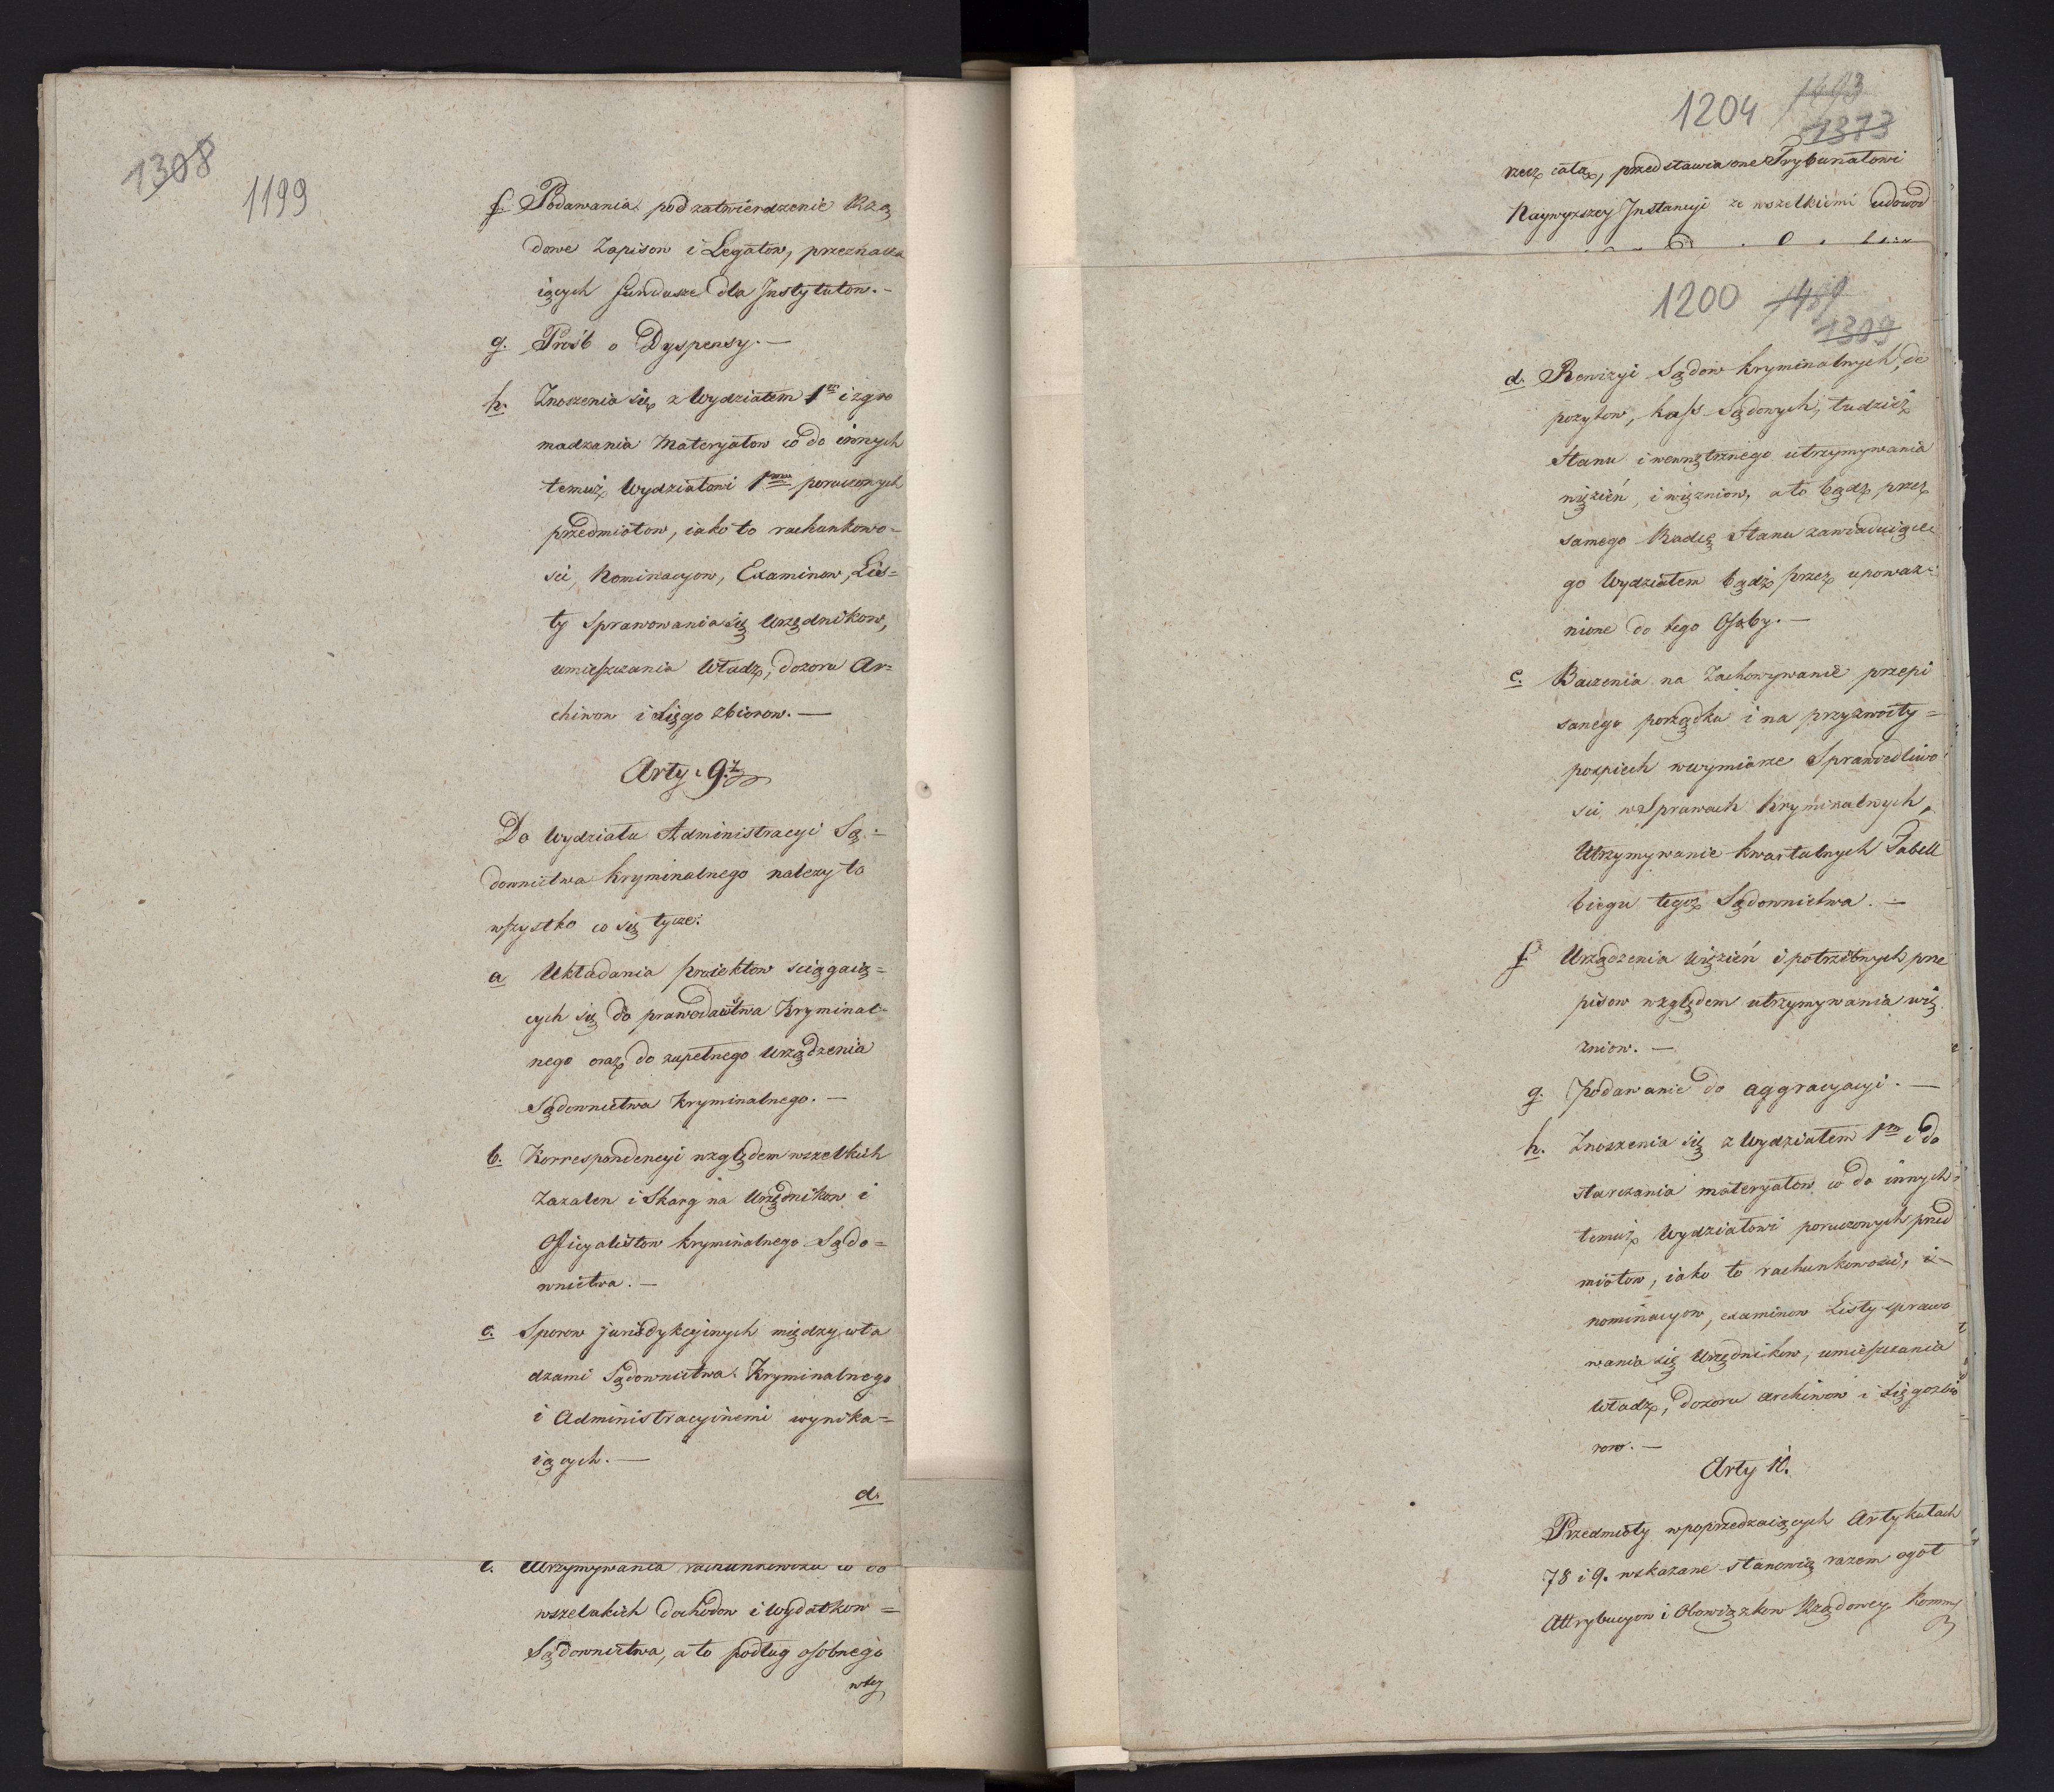 1308
1199
f. Podawania pod zatwierdzenie Rzą
dowe Zapisow i Legatow, przeznacza
iących fundusze dla Instytutow.-
g. Prosb o Dyspensy.-
h. Znoszenia się z Wydziałem 1m i zgro
madzania Materyałow co do innych
temuż Wydziałowi 1mu poruczonych
przedmiotow, iako to rachunkowo=
sci, Nominacyow, Examinow, Lis=
ty sprawowania się Urzędnikow,
umieszczania Władz, dozoru Ar=
chiwow i Xięgo zbiorow.-
Arty: 9.
Do Wydziału Administracyi Są=
downictwa kryminalnego należy to
wszystko co się tycze:
a Układania proiektow sciągaią=
cych się do prawodawstwa Kryminal=
nego oraz do zupełnego Urządzenia
Sądownictwa Kryminalnego.-
b. Korrespondencyi względem wszelkich
Zazalen i Skarg na Urzędnikow i
Officyalistow kryminalnego Sądo=
wnictwa.-
c. Sporow jurisdykcyinych między wła
dzami Sądownictwa Kryminalnego
i Administracyinemi wynika=
iących.-
d.
Utrzymywania rachunkowosci co do
wszelakich dochodow i wydatkow=
Sądownictwa, a to podług osobnego
w tey
1204
1373
rzecz całą, przedstawia one Trybunałowi
Naywyzszey Instancyi ze wszelkiemi udowod
1200
1309
d. Rewizyi Sądow kryminalnych, de
pozytow, kass Sądowych, tudzież
Stanu i wewnętrznego utrzymywania
więzień, i więzniow, a to bądz przez
samego Radcę Stanu zawiaduiące
go Wydziałem bądż przez upoważ=
nione do tego Osoby.-
e. Baczenia na Zachowywanie przepi
sanego porządku i na przyzwoity=
pospiech w wymiarze Sprawiedliwo
sci w Sprawach Kryminalnych,
Utrzymywanie kwartalnych Tabell
biegu tegoż Sądownictwa.-
f. Urządzenia Więzień i potrzebnych prze
pisow względem utrzymywania wię
zniow.-
g. Podawanie do aggracyacyi.-
h. Znoszenia się z Wydziałem 1m i do
starczania materyałow co do innych
temuż Wydziałowi poruczonych przed
miotow, iako to rachunkowosci,
nominacyow, examinow Listy sprawo
wania się Urzędnikow, umieszczania
Władz, dozoru archiwow i Xięgozbio
row.-
Arty 10.
Przedmioty w poprzedzaiących Artykułach
7 8 i 9. wskazane stanowią razem ogoł
Attrybucyow i Obowiązkow Rządowey Kommi